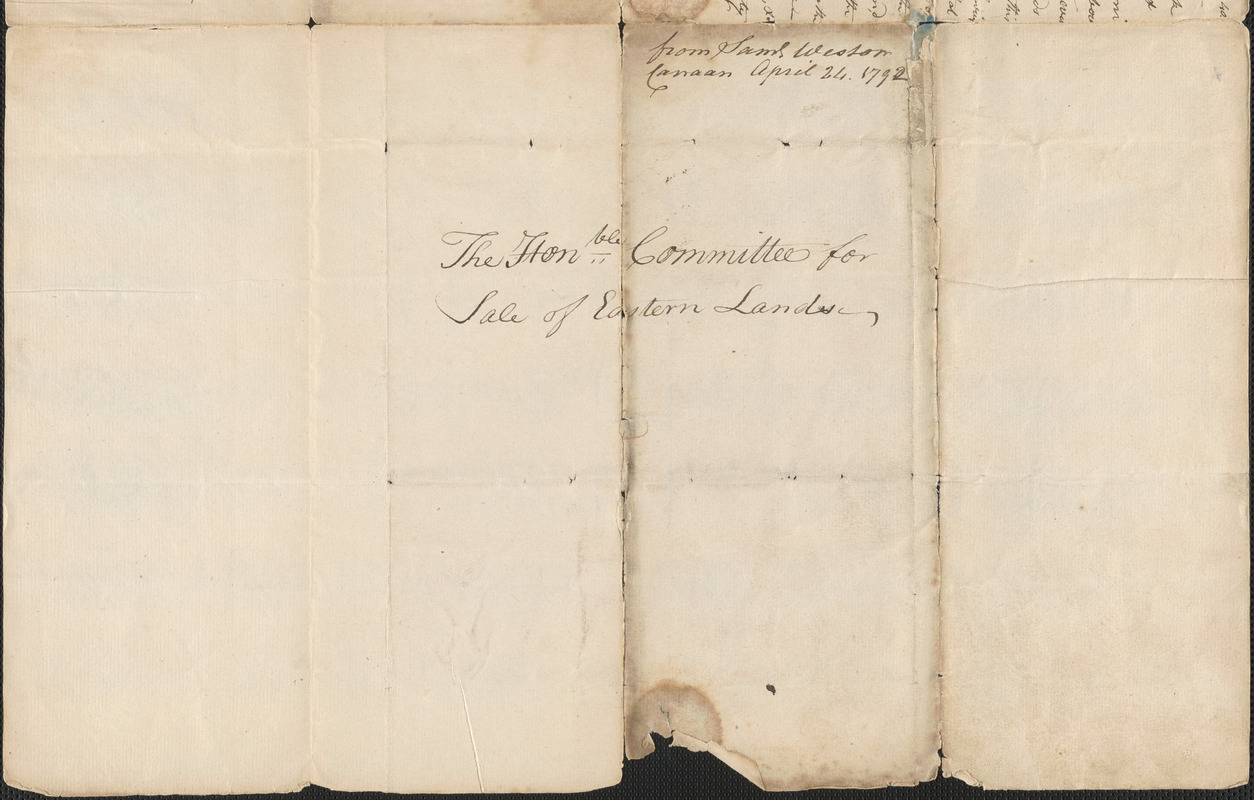 from Saml Weston
Canaan April 24. 1792
The Honble Committee for
Sale of Eastern Lands